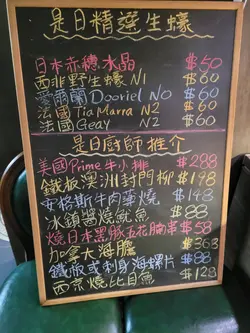 是日精選生蠔
日本赤穗水晶 $50
西非野生蠔 N1 $60
愛爾蘭 Dooriel No $60
法國 Tia Marra N2 $60
法國 Geay N2 $60
是日廚師推介
美國Prime牛小排 $288
鐵板澳洲封門柳 $198
安格斯牛肉串燒 $148
冰鎮醬燒魷魚 $88
燒日本黑豚五花腩串 $58
加拿大海膽 $368
鐵板或刺身海螺片 $88
西京燒比目魚 $128